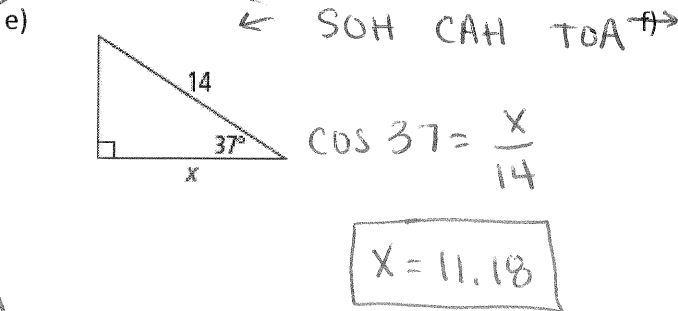 e) ← SOH CAH TOA → f)
14
37°
x
cos 37 = x/14
x = 11.18